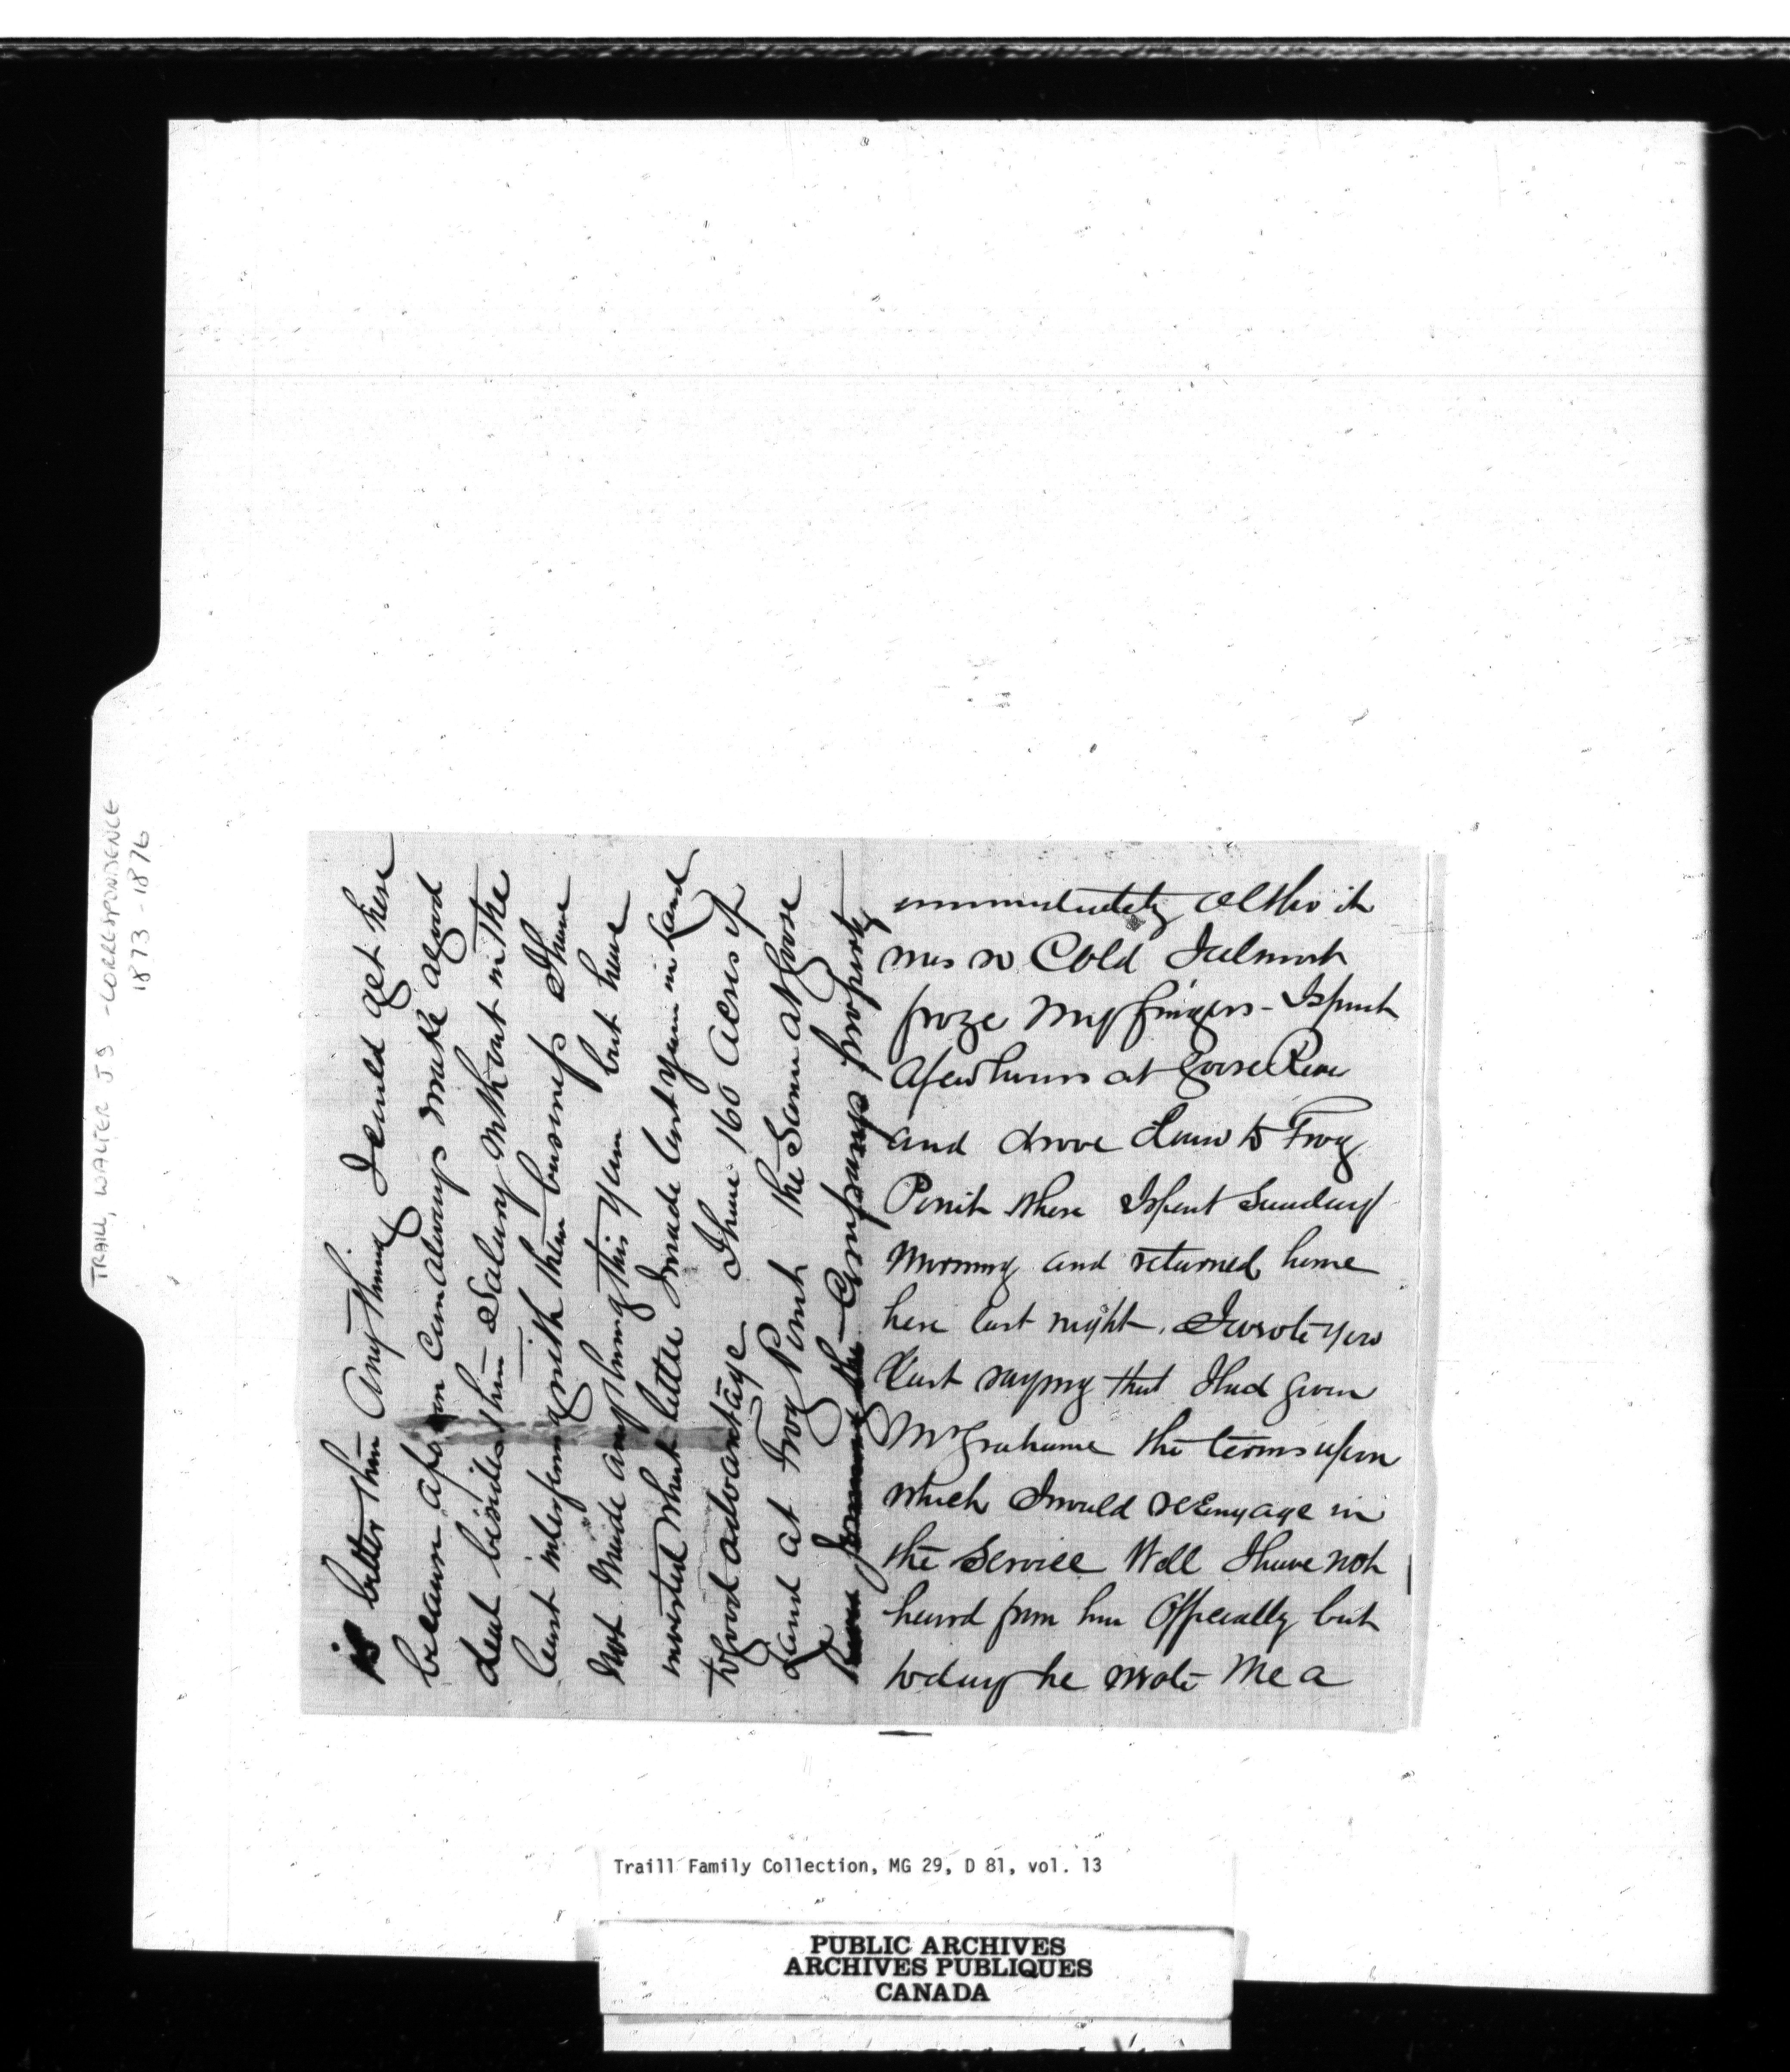 TRAILL, WALTER JS - CORRESPONDENCE
1873-1876
is better than Any thing I could get here
because a person Can always make a good
deal besides their Salary without in the
least interfering with their business I have
Not Made any thing this year but have
invested what little I made last year in Land
to good advantage I have 160 Acres of
Land at Frog Point the Same at Goose
River Joining the Companys property
immediately altho it
was so Cold I almost
froze My fingers - I spent
a few hours at Goose River
and drove down to Frog
Point where I spent Sunday
Morning and returned home
here last night. I wrote you
last saying that I had given
Mr Grahame the terms upon
which I would reEngage in
the Service Well I have not
heard from him Officially but
to day he wrote Me a
Traill Family Collection, MG 29, D 81, vol. 13
PUBLIC ARCHIVES
ARCHIVES PUBLIQUES
CANADA